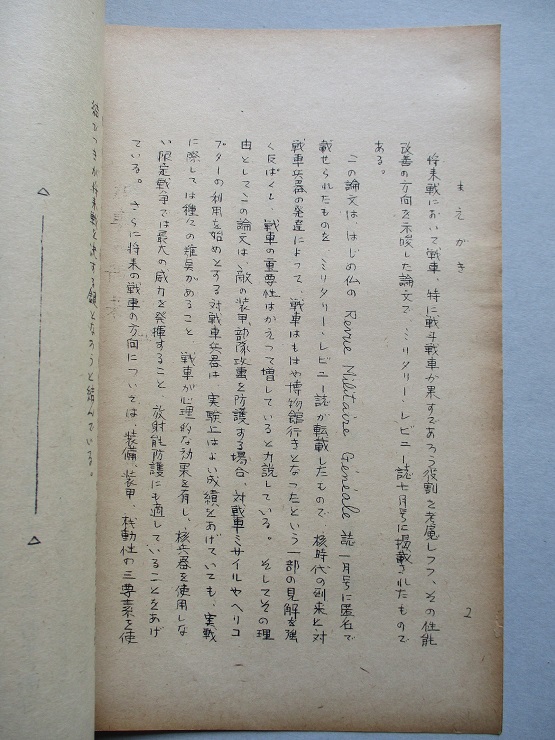 2
まえがき
将来戦において戦車、特に戦斗戦車が果すであろう役割を考慮しつつ、その性能
改善の方向を示唆した論文で、ミリタリー・レビュー誌七月号に掲載されたもので
ある。
この論文は、はじめ仏の Revue Militaire Généale 誌一月号に匿名で
載せられたものを、ミリタリー・レビュー誌が転載したもので、核時代の到来と対
戦車兵器の発達によつて、戦車はもはや博物館行きとなつたという一部の見解を強
く反ばくし、戦車の重要性はかえつて増していると力説している。そしてその理
由としてこの論文は、敵の装甲部隊攻撃を防護する場合、対戦車ミサイルやヘリコ
プターの利用を始めとする対戦車兵器は、実験上はよい成績をあげていても、実戦
に際しては種々の難点があること、戦車が心理的な効果を有し、核兵器を使用しな
い限定戦争では最大の威力を発揮すること、放射能防護にも適していることをあげ
ている。さらに将来の戦車の方向については、装備、装甲、機動性の三要素を使
いつきが将来戦を決する鍵となろうと結んでいる。